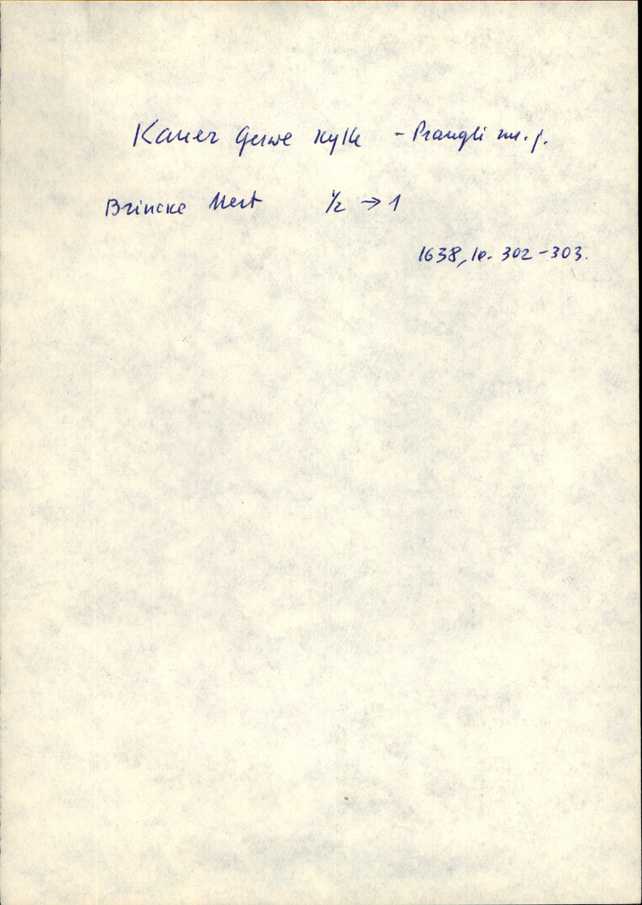 Kauer Gerwe Kylk - Prangli m. j.
Brincke Mert 1/2 → 1
1638, lc. 302-303.